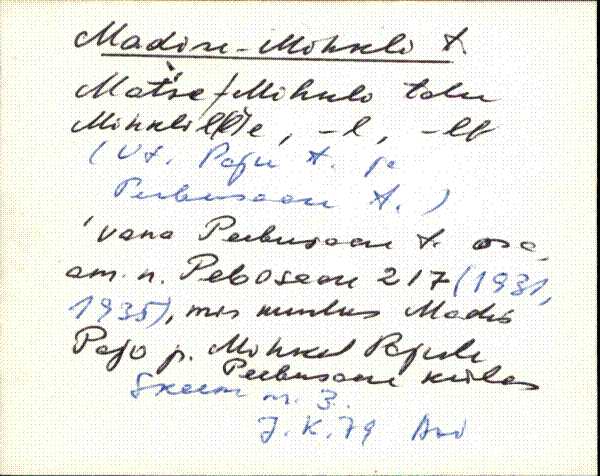 Madise-Mihkli t.
Matse/Mihkli talu
Mihklil(l)e, -l, -lt
(Vt. Paju t. ja
Peebusaare t.)
'vana Peebusaare t. osa,
am. n. Peboseau 217 (1931,
1935), mis kuulus Madis
Pajo ja Mihkel Pajule
Peebusaare külas
Skeem nr. 3.
J.K.79